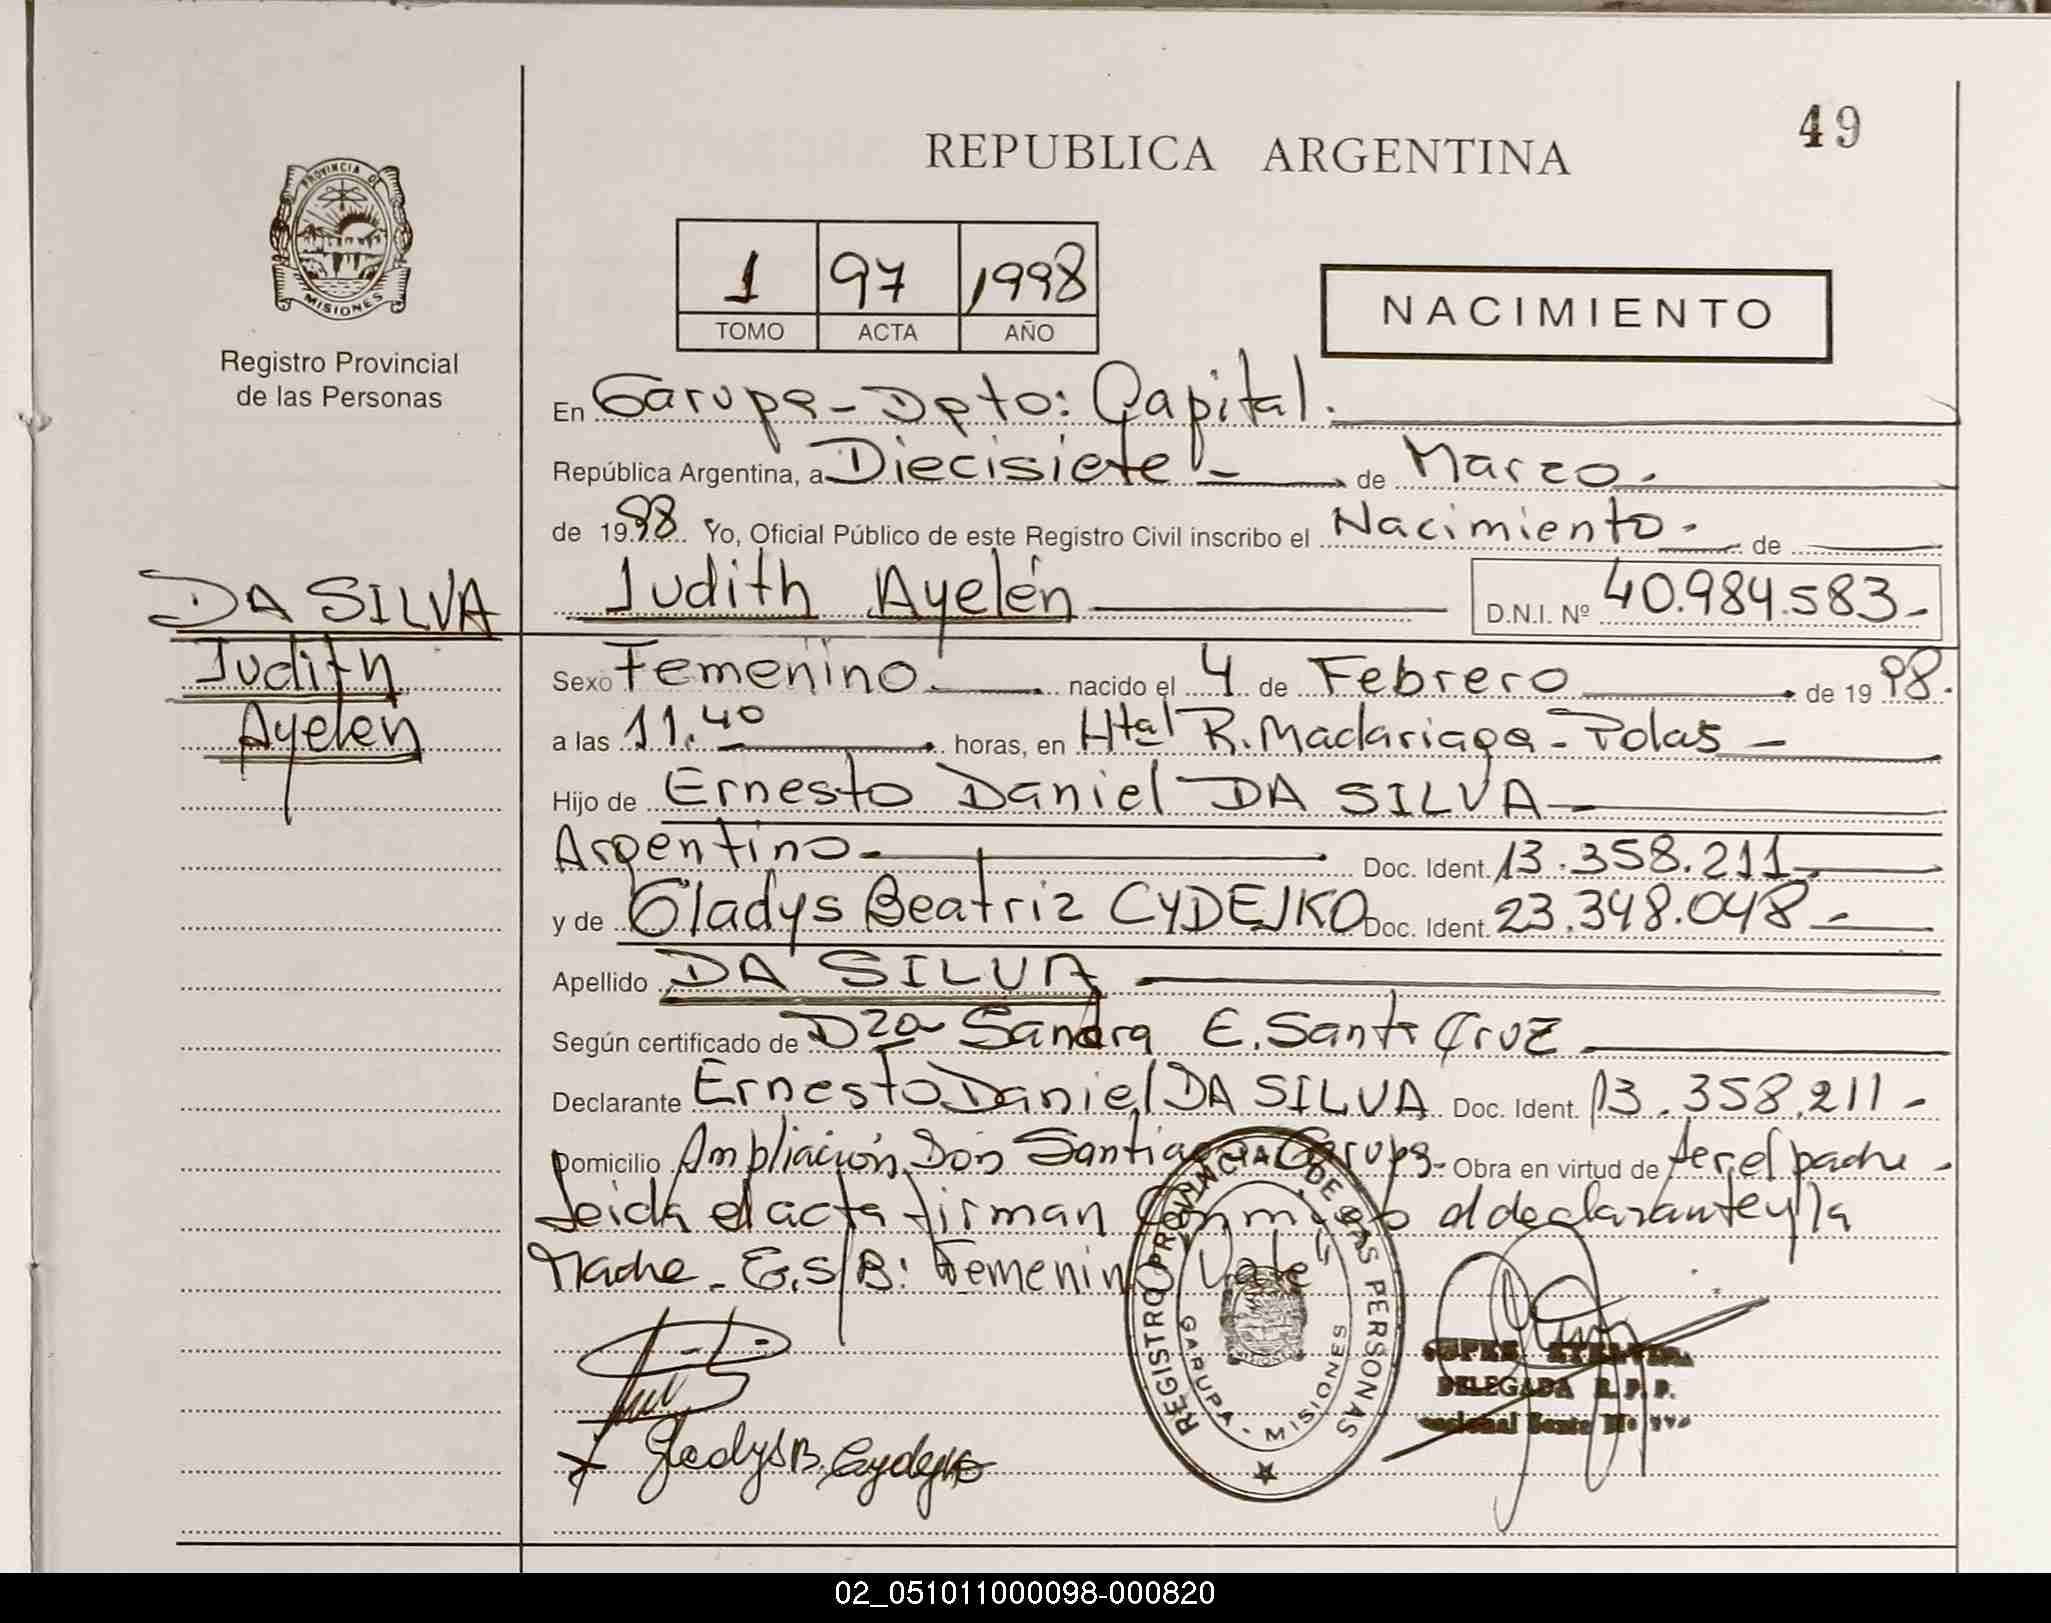 49
REPUBLICA ARGENTINA
PROVINCIA DE
MISIONES
Registro Provincial
de las Personas
1 97 1998
TOMO ACTA AÑO
NACIMIENTO
En Garupa - Dpto: Capital.
República Argentina, a Diecisiete - de Marzo.
de 19 98 Yo, Oficial Público de este Registro Civil inscribo el Nacimiento. de
Judith Ayelén D.N.I. Nº 40.984.583-
DA SILVA
Judith
Ayelen
Sexo Femenino. nacido el 4 de Febrero de 19 98.
a las 11.40 horas, en Htal R. Madariaga - Pdas -
Hijo de Ernesto Daniel DA SILVA
Argentino Doc. Ident. 13.358.211
y de Gladys Beatriz CYDEJKO Doc. Ident. 23.348.048 -
Apellido DA SILVA
Según certificado de Dra Sandra E. Santa Cruz
Declarante Ernesto Daniel DA SILVA Doc. Ident. 13.358.211 -
Domicilio Ampliación Don Santiago Garupa - Obra en virtud de ser el padre -
Leida el acta firman conmigo el declarante y la
Madre - E.S/B: Femenino Vale
REGISTRO PROVINCIAL DE LAS PERSONAS
GARUPA - MISIONES
DELEGADA R. P. P.
Gladys B. Cydejko
02_051011000098-000820